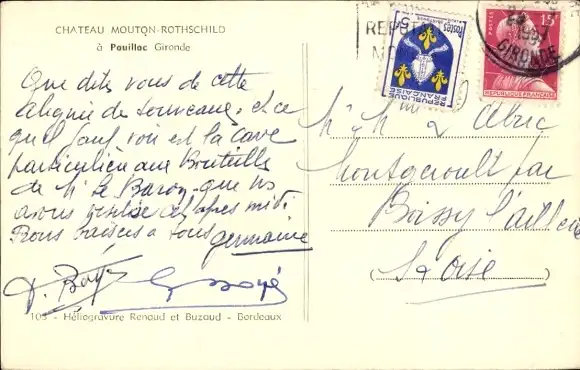 CHATEAU MOUTON-ROTHSCHILD
à Pauillac Gironde
Que dites vous de cette
alignée de tonneaux, et ce
qu'il faut voir est la cave
particulière aux Bouteilles
de Mr Le Baron que ns
avons visitée cet après midi
Bons baisers a tous
Germaine
103 - Héliogravure Renaud et Buzaud - Bordeaux
REPU
5F
Postes
REPUBLIQUE
FRANCAISE
15F
POSTES
REPUBLIQUE FRANÇAISE
1957
GIRONDE
Montgeroult par
Boissy l'aillerie
(S et Oise)